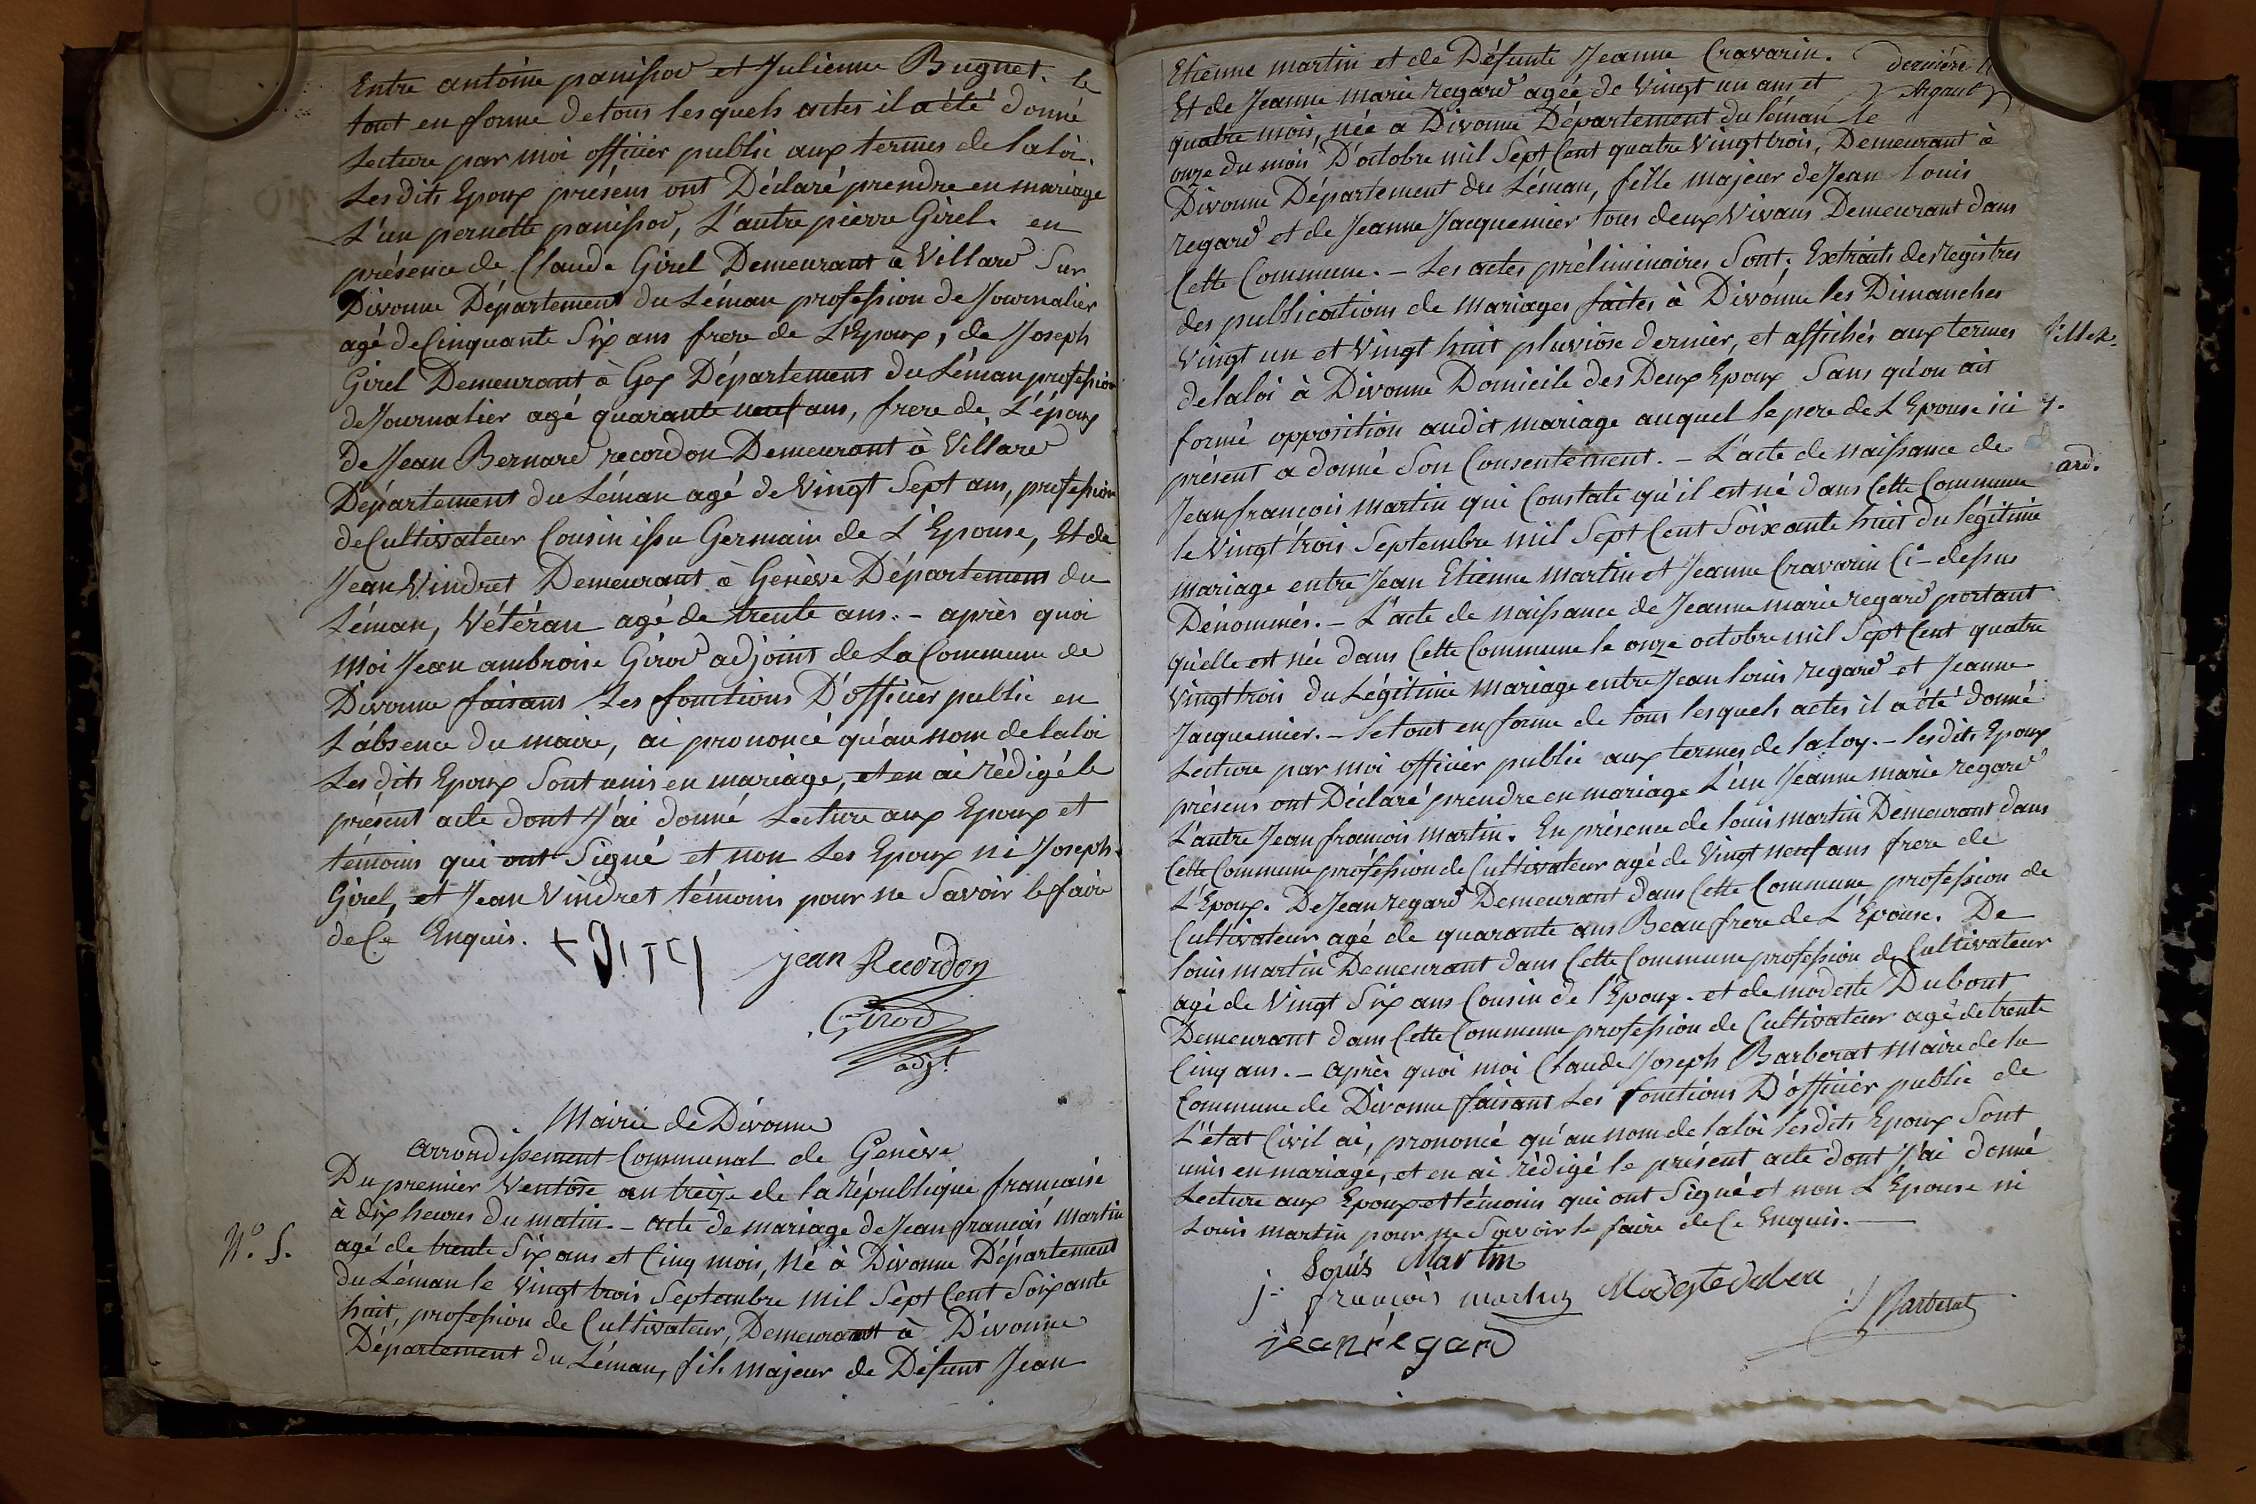 Entre antoine panissod et Julienne Bugnet. le
tout en forme de tous lesquels actes il a été donné
Lecture par moi officier public aux termes de la loi.
Lesdits Epoux présens ont Déclaré prendre en mariage
L'un pernette panissod, L'autre pierre Girel. en
présence de Claude Girel Demeurant a Villard Sur
Divonne Département du Léman profession de Journalier
agé de Cinquante Six ans frere de L'Epoux, de Joseph
Girel Demeurant à Gex Département du Léman profession
de Journalier agé quarante neuf ans, frere de L'époux
de Jean Bernard recordon Demeurant à Villard
Département du Léman agé de Vingt Sept ans, profession
de Cultivateur Cousin issu Germain de L'Epouse, Et de
Jean Vindret Demeurant à Genève Département du
Léman, Vétéran agé de trente ans. - après quoi
Moi Jean ambroise Girod adjoint de La Commune de
Divonne faisans Les fonctions D'officier public en
L'absence du maire, ai prononcé qu'au nom de la loi
Les dits Epoux Sont unis en mariage, et en ai rédigé le
présent acte dont J'ai donné Lecture aux Epoux et
témoins qui ont Signé et non Les Epoux ni Joseph
Girel, et Jean Vindret témoins pour ne Savoir le faire
de Ce Enquis.
jean Recordon
Girod
adjt.
Mairie de Divonne
arrondissement Communal de Genève
N.° 5.
Du premier Ventôse an treize de la République francaise
à dix heures du matin. - acte de mariage de Jean francois Martin
agé de trente Six ans et Cinq mois, Né à Divonne Département
du Léman le Vingt trois Septembre Mil Sept Cent Soixante
huit, profession de Cultivateur, Demeurant à Divonne
Département du Léman, fils Majeur de Défunt Jean
Etienne martin et de Défunte Jeanne Cravarin.
Et de Jeanne marie regard agée de Vingt un ans et
quatre mois, née a Divonne Département du léman le
onze du mois D'octobre mil Sept Cent quatre Vingt trois, Demeurant à
Divonne Département du Léman, fille majeur de Jean Louis
regard et de Jeanne Jacquemier tous deux Vivans Demeurant dans
Cette Commune. - Les actes préliminaires Sont, Extraits des registres
des publications de mariages faites à Divonne les Dimanches
Vingt un et Vingt huit pluviôse dernier, et affichés aux termes
de la loi à Divonne Domicile des Deux Epoux Sans qu'on ait
formé opposition audit mariage auquel le pere de L'Epouse ici
présent a donné Son Consentement. - L'acte de naissance de
Jean francois martin qui Constate qu'il est né dans Cette Commune
le Vingt trois Septembre mil Sept Cent Soixante huit du légitime
mariage entre Jean Etienne martin et Jeanne Cravarin Ci-dessus
Dénommés. - L'acte de naissance de Jeanne marie regard portant
qu'elle est née dans Cette Commune le onze octobre mil Sept Cent quatre
Vingt trois du Légitime mariage entre Jean louis regard et Jeanne
Jacquemier. - Le tout en forme de tous lesquels actes il a été donné
Lecture par moi officier public aux termes de la loy. - lesdits Epoux
présens ont Déclaré prendre en mariage L'un Jeanne marie regard
L'autre Jean francois martin. En présence de louis martin Demeurant dans
Cette Commune profession de Cultivateur agé de Vingt neuf ans frere de
L'Epoux. De Jean regard Demeurant dans Cette Commune profession de
Cultivateur agé de quarante ans Beau frere de L'Epouse. De
louis martin Demeurant dans Cette Commune profession de Cultivateur
agé de Vingt Six ans Cousin de l'Epoux. et de modeste Dubout
Demeurant dans Cette Commune profession de Cultivateur agé de trente
Cinq ans. - après quoi moi Claude Joseph Barberat Maire de la
Commune de Divonne faisant Les fonctions D'officier public de
L'état Civil ai, prononcé qu'au nom de la loi lesdits Epoux Sont
unis en mariage, et en ai rédigé le présent acte dont J'ai donné
Lecture aux Epoux et témoins qui ont Signé et non L'Epouse ni
Louis martin pour ne Savoir le faire de Ce Enquis.
Louis Martin
j. francois martin Modeste
Barberat
jean regard